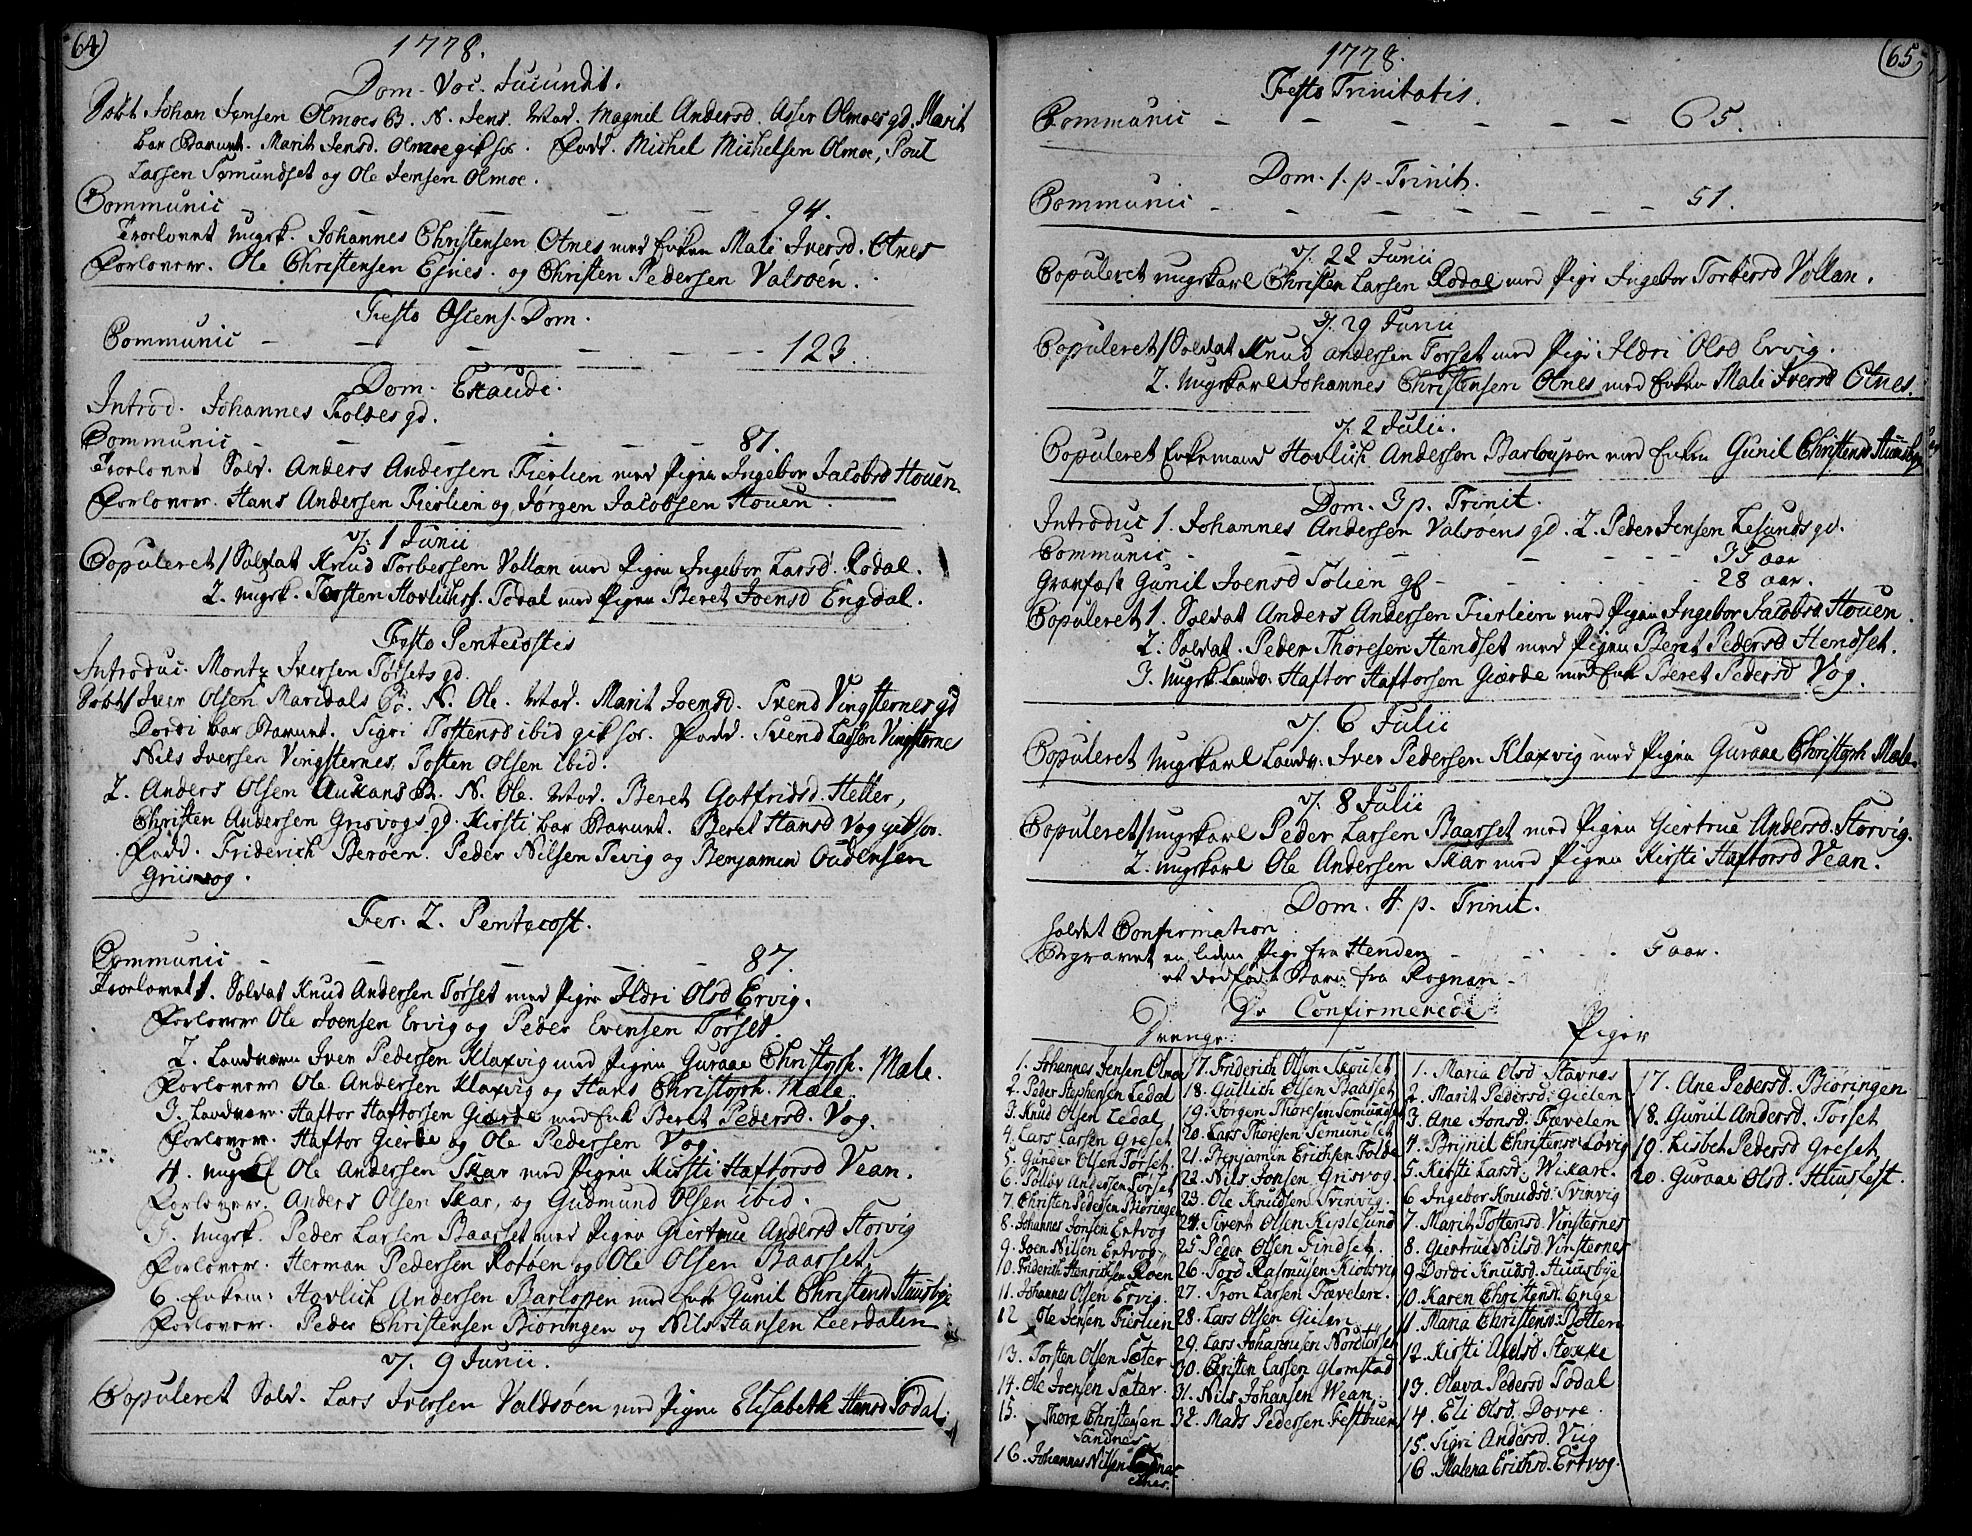 64
1778.
Dom. Voc. Jucundit.
Døbt Johan Jensen Olmoes B. N. Jens. Mod. Magnil Andersd. Asser Olmoes gd. Marit
bar Barnet. Marit Jensd. Olmoe gik hos. Fadd. Michel Michelsen Olmoe, Poul
Larsen Semundset og Ole Jensen Olmoe.
Communic - - - - - 94.
Trorlovet Ungk. Johannes Christensen Otnes med Enken Mali Iversd. Otnes
Forlover. Ole Christensen Egnes. og Christen Pedersen Valsøen.
Festo Ascens. Dom.
Communic - - - - - 123.
Dom. Exaudi.
Introd. Johannes Foldes gd.
Communic - - - - - 87.
Trorlovet Sold. Anders Andersen Fierlien med Pigen Ingebor Jacobsd Houen.
Forlover. Hans Andersen Fierlien og Jørgen Jacobsen Houen.
D. 1 Junii
Copuleret 1 Soldat Knud Torbersen Vollan med Pigen Ingebor Larsd. Rodal.
2. Ungk. Torsten Hovlichs. Todal med Pigen Beret Joensd Engdal.
Festo Pentecostes
Introduc. Montz Iversen Torsets gd.
Døbt 1 Iver Olsen Mardals B. N. Ole. Mod. Marit Joensd. Svend Vingsternes gd
Dordi bar Barnet. Sigri Tostensd ibid gik hos. Fadd. Svend Larsen Vingsternes
Nils Iversen Vingsternes, Tosten Olsen ibid.
2. Anders Olsen Aukans B. N. Ole. Mod. Beret Gotfridsd. Heller,
Christen Andersen Grisvogs gd. Kirsti bar Barnet. Beret Hansd Vog gik hos.
Fadd. Friderich Berøen. Peder Nilsen Pevig og Benjamin Oudensen
Grisvog.
Fer. 2. Pentecost.
Communic - - - - - 87.
Trorlovet 1. Soldat Knud Andersen Torset med Pigen Ildri Olsd Ervig.
Forlover Ole Joensen Ervig og Peder Evensen Torset.
2. Landværn Iver Pedersen Klaxvig med Pigen Guraae Christoph. Mæle.
Forlover Ole Andersen Klaxvig og Hans Christoph. Mæle.
3. Landværn. Haftor Haftorsen Gierde med Enk Beret Pedersd. Vog.
Forlover. Haftor Gierde og Ole Pedersen Vog.
4. Ungkl Ole Andersen Skar med Pigen Kirsti Haftorsd Vean.
Forlover. Anders Olsen Skar, og Gudmund Olsen ibid.
5. Ungk. Peder Larsen Baarset med Pigen Giertrue Andersd Storvig
Forlover. Herman Pedersen Rotøen og Ole Olsen Baarset
6. Enkem: Hovlich Andersen Barloppen med Enk Gunil Christensd Huusbye
Forlover. Peder Christensen Bioringen og Nils Hansen Leerdalen
D. 9 Junii.
Copuleret Sold. Lars Iversen Valdsøen med Pigen Elisabeth Hansd Todal.
65
1778.
Festo Trinitatis.
Communic - - - - - 65.
Dom. 1. p. Trinit.
Communic - - - - - 51.
D. 22 Junii
Copuleret Ungkarl Christen Larsen Rodal med Pige Ingebor Torbersd Vollan.
D. 29 Junii
Copuleret 1 Soldat Knud Andersen Torset med Pige Ildri Olsd Ervig.
2. Ungkarl Johannes Christensen Otnes med Enken Mali Iversd Otnes.
D. 2 Julii.
Copuleret Enkemand Hovlich Andersen Barloupen med Enken Gunil Christensd Huusbye
Dom. 3 p. Trinit.
Introduc 1. Johannes Andersen Valsøens gd. 2. Peder Jensen Lesunds gd.
Communic - - - - - 35 aar
Granfæst Gunil Joensd Tolien gl - - - 28 aar.
Copuleret 1. Soldat Anders Andersen Fierlien med Pigen Ingebor Jacobsd Houen.
2. Soldat. Peder Thoresen Hendset med Pigen Beret Pedersd Hendset.
3. Ungk. Landv: Haftor Haftorsen Gierde med Enk Beret Pedersd Vog.
D. 6 Julii
Copuleret Ungkarl Landv: Iver Pedersen Klaxvig med Pigen Guraae Christoph Mæle.
D. 8 Julii
Copuleret 1 Ungkarl Peder Larsen Baarset med Pigen Giertrue Andersd. Storvig.
2. Ungkarl Ole Andersen Skar med Pigen Kirsti Haftorsd Vean.
Dom. 4. p. Trinit.
holdet Confirmation
Begravet en liden Pige fra Henden - - - 5 aar.
et dødfødt Barn fra Rognan -
De Confirmerede
Drenge
1. Johannes Jensen Olmoe
2. Peder Stephensen Ledal
3. Knud Olsen Ledal
4. Lars Larsen Greset
5. Gunder Olsen Torset.
6. Tollov Andersen Torset
7. Christen Pedersen Bioringen
8. Johannes Jonsen Ertvog
9. Joen Nilsen Ertvog
10. Friderich Henrichsen Roen
11. Johannes Olsen Ervig
12 Ole Jensen Fierlien
13. Torsten Olsen Sæter
14. Ole Joensen Sætar.
15. Thore Christensen
Sandnes
16. Johannes Nilsen
17. Friderich Olsen Skouset
18. Gullich Olsen Baaset
19. Jorgen Thoresen Semundset
20. Lars Thoresen Semundset
21. Benjamin Erichsen Folde
22. Nils Jonsen Grisvog
23. Ole Knudsen Svinvig.
24. Sivert Olsen Kiplesund
25. Peder Olsen Findset.
26. Tord Rasmusen Kiorsvig
27. Tron Larsen Fævelen.
28. Lars Olsen Gielen
29. Lars Johannesen Nordtorsen
30. Christen Larsen Glomstad
31. Nils Johansen Wean.
32. Mads Pedersen Festbuen
Piger
1. Maria Olsd Stavnes
2. Marit Pedersd: Gielen
3. Ane Jonsd. Fævelen
4. Brynil Christensd. Løvig
5. Kirsti Larsd: Wikan.
6 Ingebor Knudsd. Svinvig
7. Marit Tostensd. Vinsternes
8. Giertrue Nilsd. Vinsternes
9 Dordi Knudsd. Huusbye
10. Karen Christensd. Enge
11. Maria Christensd: Botten
12. Kirsti Axelsd Stokke
13. Olava Pedersd Todal
14. Eli Olsd. Dovre.
15. Sigri Andersd. Viig
16. Malena Erichsd. Ertvog.
17. Ane Pedersd. Bioringen
18. Gunil Andersd. Torset
19. Lisbet Pedersd Greset
20. Guraae Olsd. Huuslest.